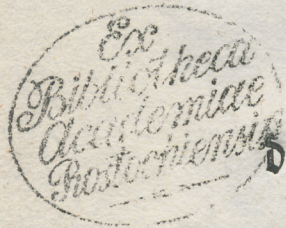 Ex
Bibliotheca
Academiae
Rostochiensis
D